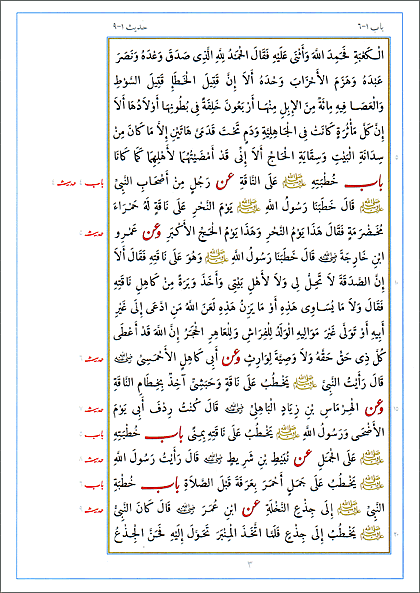 باب ١-٦
حديث ١-٩
الْكَعْبَةِ فَحَمِدَ اللهَ وَأَثْنَى عَلَيْهِ فَقَالَ الْحَمْدُ لِلّٰهِ الَّذِى صَدَقَ وَعْدَهُ وَنَصَرَ
عَبْدَهُ وَهَزَمَ الأَحْزَابَ وَحْدَهُ أَلاَ إِنَّ قَتِيلَ الْخَطَإِ قَتِيلَ السَّوْطِ
وَالْعَصَا فِيهِ مِائَةٌ مِنَ الإِبِلِ مِنْهَا أَرْبَعُونَ خَلِفَةً فِى بُطُونِهَا أَوْلاَدُهَا أَلاَ
إِنَّ كُلَّ مَأْثُرَةٍ كَانَتْ فِى الْجَاهِلِيَّةِ وَدَمٍ تَحْتَ قَدَمَىَّ هَاتَيْنِ إِلاَّ مَا كَانَ مِنْ
سِدَانَةِ الْبَيْتِ وَسِقَايَةِ الْحَاجِّ أَلاَ إِنِّى قَدْ أَمْضَيْتُهُمَا لأَهْلِهِمَا كَمَا كَانَا
باب خُطْبَتِهِ ﷺ عَلَى النَّاقَةِ عن رَجُلٍ مِنْ أَصْحَابِ النَّبِىِّ
باب حديث
ﷺ قَالَ خَطَبَنَا رَسُولُ اللهِ ﷺ يَوْمَ النَّحْرِ عَلَى نَاقَةٍ لَهُ حَمْرَاءَ
مُخَضْرَمَةٍ فَقَالَ هَذَا يَوْمُ النَّحْرِ وَهَذَا يَوْمُ الْحَجِّ الأَكْبَرِ وعن عَمْرِو
حديث
ابْنِ خَارِجَةَ قَالَ خَطَبَنَا رَسُولُ اللهِ ﷺ وَهُوَ عَلَى نَاقَتِهِ فَقَالَ أَلاَ
إِنَّ الصَّدَقَةَ لاَ تَحِلُّ لِى وَلاَ لأَهْلِ بَيْتِى وَأَخَذَ وَبَرَةً مِنْ كَاهِلِ نَاقَتِهِ
فَقَالَ وَلاَ مَا يُسَاوِى هَذِهِ أَوْ مَا يَزِنُ هَذِهِ لَعَنَ اللهُ مَنِ ادَّعَى إِلَى غَيْرِ
أَبِيهِ أَوْ تَوَلَّى غَيْرَ مَوَالِيهِ الْوَلَدُ لِلْفِرَاشِ وَلِلْعَاهِرِ الْحَجَرُ إِنَّ اللهَ قَدْ أَعْطَى
كُلَّ ذِى حَقٍّ حَقَّهُ وَلاَ وَصِيَّةَ لِوَارِثٍ وعن أَبِى كَاهِلٍ الأَحْمَسِىِّ
حديث
قَالَ رَأَيْتُ النَّبِىَّ ﷺ يَخْطُبُ عَلَى نَاقَةٍ وَحَبَشِىٌّ آخِذٌ بِخِطَامِ النَّاقَةِ
وعن الْهِرْمَاسِ بْنِ زِيَادٍ الْبَاهِلِىِّ قَالَ كُنْتُ رِدْفَ أَبِى يَوْمَ
حديث
الأَضْحَى وَرَسُولُ اللهِ ﷺ يَخْطُبُ عَلَى نَاقَتِهِ بِمِنًى باب خُطْبَتِهِ
باب
ﷺ عَلَى الْجَمَلِ عن نُبَيْطِ بْنِ شَرِيطٍ قَالَ رَأَيْتُ رَسُولَ اللهِ
حديث
ﷺ يَخْطُبُ عَلَى جَمَلٍ أَحْمَرَ بِعَرَفَةَ قَبْلَ الصَّلاَةِ باب خُطْبَةِ
باب
النَّبِىِّ ﷺ إِلَى جِذْعِ النَّخْلَةِ عن ابْنِ عُمَرَ قَالَ كَانَ النَّبِىُّ
حديث
ﷺ يَخْطُبُ إِلَى جِذْعٍ فَلَمَّا اتَّخَذَ الْمِنْبَرَ تَحَوَّلَ إِلَيْهِ فَحَنَّ الْجِذْعُ
٣